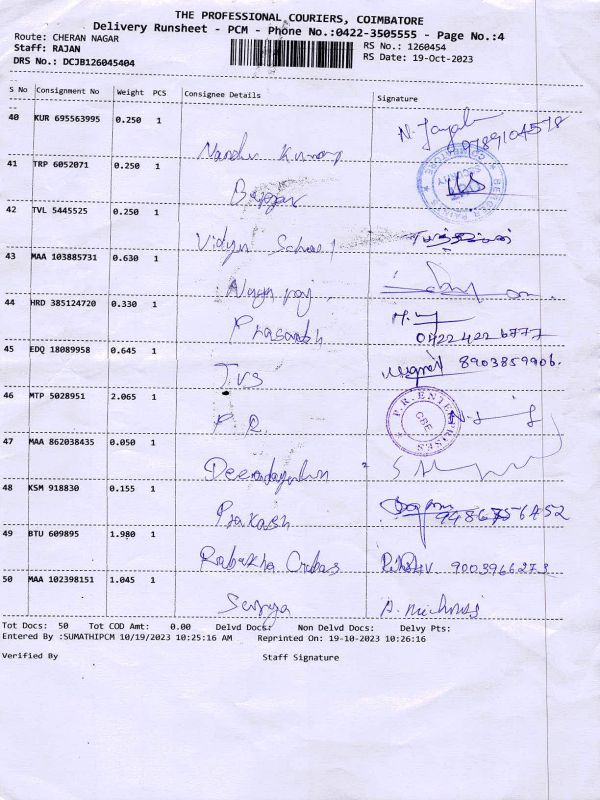 THE PROFESSIONAL COURIERS, COIMBATORE
Delivery Runsheet - PCM - Phone No.:0422-3505555 - Page No.:4
Route: CHERAN NAGAR
RS No.: 1260454
Staff: RAJAN
RS Date: 19-Oct-2023
DRS No.: DCJB126045404
S No Consignment No Weight PCS Consignee Details Signature
40 KUR 695563995 0.250 1 Nandu Kumar 9789104578
41 TRP 6052071 0.250 1
42 TVL 5445525 0.250 1 Vidya School
43 MAA 103885731 0.630 1 Nagaraj
44 HRD 385124720 0.330 1 Prasanth 0422 422 6777
45 EDQ 18089958 0.645 1 TVS 8903859906.
46 MTP 5028951 2.065 1 P.R. P.R. ENTERPRISES CBE
47 MAA 862038435 0.050 1
48 KSM 918830 0.155 1 Prakash
49 BTU 609895 1.980 1 9003966273
50 MAA 102398151 1.045 1 Surya
Tot Docs: 50 Tot COD Amt: 0.00 Delvd Docs: Non Delvd Docs: Delvy Pts:
Entered By :SUMATHIPCM 10/19/2023 10:25:16 AM Reprinted On: 19-10-2023 10:26:16
Verified By Staff Signature